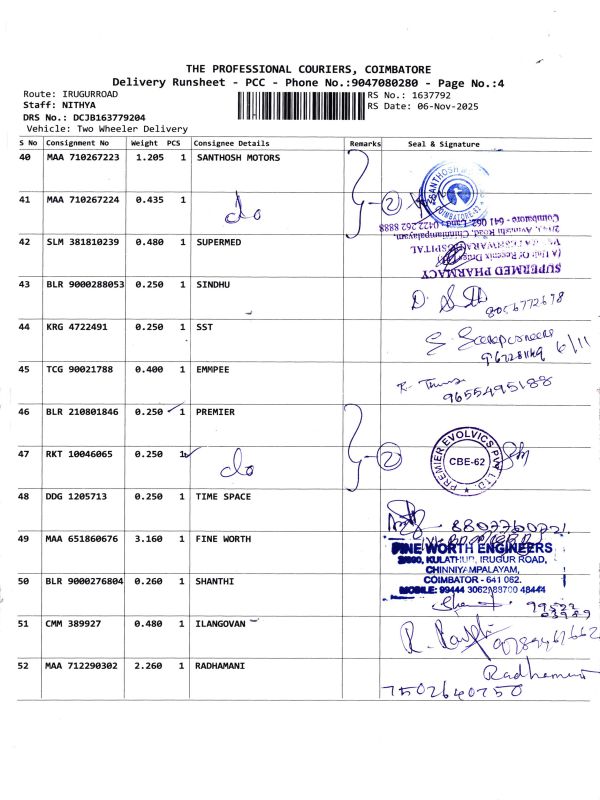 THE PROFESSIONAL COURIERS, COIMBATORE
Delivery Runsheet - PCC - Phone No.:9047080280 - Page No.:4
Route: IRUGURROAD
RS No.: 1637792
Staff: NITHYA
RS Date: 06-Nov-2025
DRS No.: DCJB163779204
Vehicle: Two Wheeler Delivery
S No Consignment No Weight PCS Consignee Details Remarks Seal & Signature
40 MAA 710267223 1.205 1 SANTHOSH MOTORS
41 MAA 710267224 0.435 1 do 2
42 SLM 381810239 0.480 1 SUPERMED
SUPERMED PHARMACY
43 BLR 9000288053 0.250 1 SINDHU
8056772678
44 KRG 4722491 0.250 1 SST
6/11
45 TCG 90021788 0.400 1 EMMPEE
9655495188
46 BLR 210801846 0.250 1 PREMIER
47 RKT 10046065 0.250 1 do 2
PREMIER EVOLVICS PVT LTD.
CBE-62
48 DDG 1205713 0.250 1 TIME SPACE
8807760721
49 MAA 651860676 3.160 1 FINE WORTH
FINE WORTH ENGINEERS
KULATHUR, IRUGUR ROAD,
CHINNIYAMPALAYAM,
COIMBATOR - 641 062.
50 BLR 9000276804 0.260 1 SHANTHI
MOBILE: 99444 30628
51 CMM 389927 0.480 1 ILANGOVAN
52 MAA 712290302 2.260 1 RADHAMANI
Radhamani
7502640750